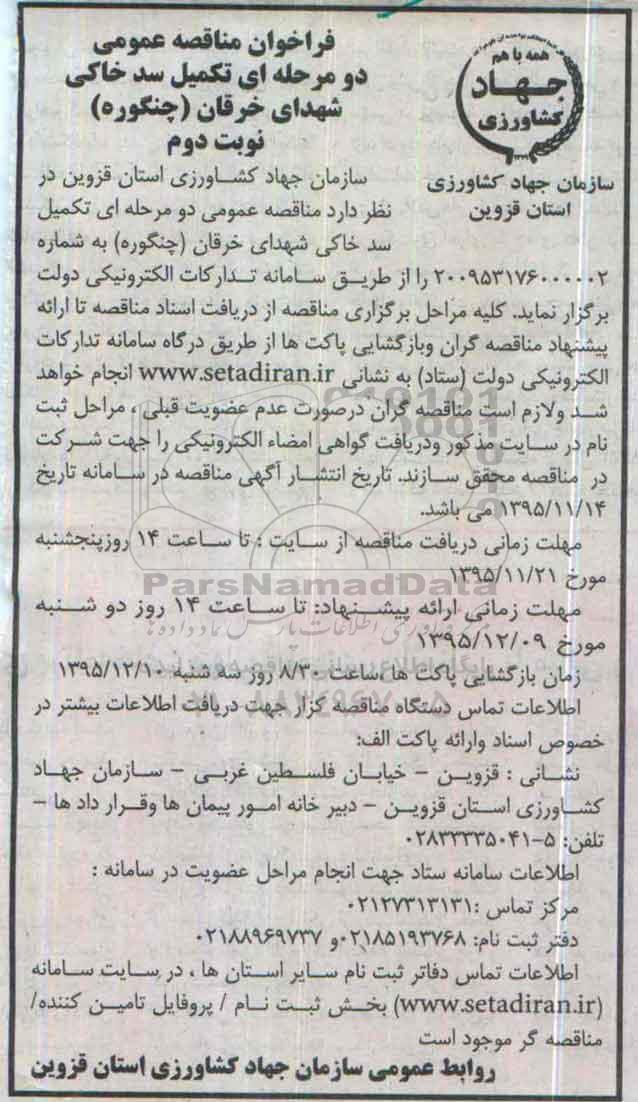 فراخوان مناقصه عمومی
دو مرحله ای تکمیل سد خاکی
شهدای خرقان (چنگوره)
نوبت دوم
همه با هم
جهاد
کشاورزی
سازمان جهاد کشاورزی
استان قزوین
سازمان جهاد کشاورزی استان قزوین در
نظر دارد مناقصه عمومی دو مرحله ای تکمیل
سد خاکی شهدای خرقان (چنگوره) به شماره
۲۰۰۹۵۳۱۷۶۰۰۰۰۰۲ را از طریق سامانه تدارکات الکترونیکی دولت
برگزار نماید. کلیه مراحل برگزاری مناقصه از دریافت اسناد مناقصه تا ارائه
پیشنهاد مناقصه گران وبازگشایی پاکت ها از طریق درگاه سامانه تدارکات
الکترونیکی دولت (ستاد) به نشانی www.setadiran.ir انجام خواهد
شد ولازم است مناقصه گران درصورت عدم عضویت قبلی ، مراحل ثبت
نام در سایت مذکور ودریافت گواهی امضاء الکترونیکی را جهت شرکت
در مناقصه محقق سازند. تاریخ انتشار آگهی مناقصه در سامانه تاریخ
۱۳۹۵/۱۱/۱۴ می باشد.
مهلت زمانی دریافت مناقصه از سایت : تا ساعت ۱۴ روزپنجشنبه
مورخ ۱۳۹۵/۱۱/۲۱
ParsNamadData
مهلت زمانی ارائه پیشنهاد: تا ساعت ۱۴ روز دو شنبه
مورخ ۱۳۹۵/۱۲/۰۹
زمان بازگشایی پاکت ها :ساعت ۸/۳۰ روز سه شنبه ۱۳۹۵/۱۲/۱۰
اطلاعات تماس دستگاه مناقصه گزار جهت دریافت اطلاعات بیشتر در
خصوص اسناد وارائه پاکت الف:
نشانی : قزوین - خیابان فلسطین غربی - سازمان جهاد
کشاورزی استان قزوین - دبیر خانه امور پیمان ها وقرار داد ها -
تلفن: ۵-۰۲۸۳۳۳۳۵۰۴۱
اطلاعات سامانه ستاد جهت انجام مراحل عضویت در سامانه :
مرکز تماس :۰۲۱۲۷۳۱۳۱۳۱
دفتر ثبت نام: ۰۲۱۸۵۱۹۳۷۶۸و ۰۲۱۸۸۹۶۹۷۳۷
اطلاعات تماس دفاتر ثبت نام سایر استان ها ، در سایت سامانه
(www.setadiran.ir) بخش ثبت نام / پروفایل تامین کننده/
مناقصه گر موجود است
روابط عمومی سازمان جهاد کشاورزی استان قزوین